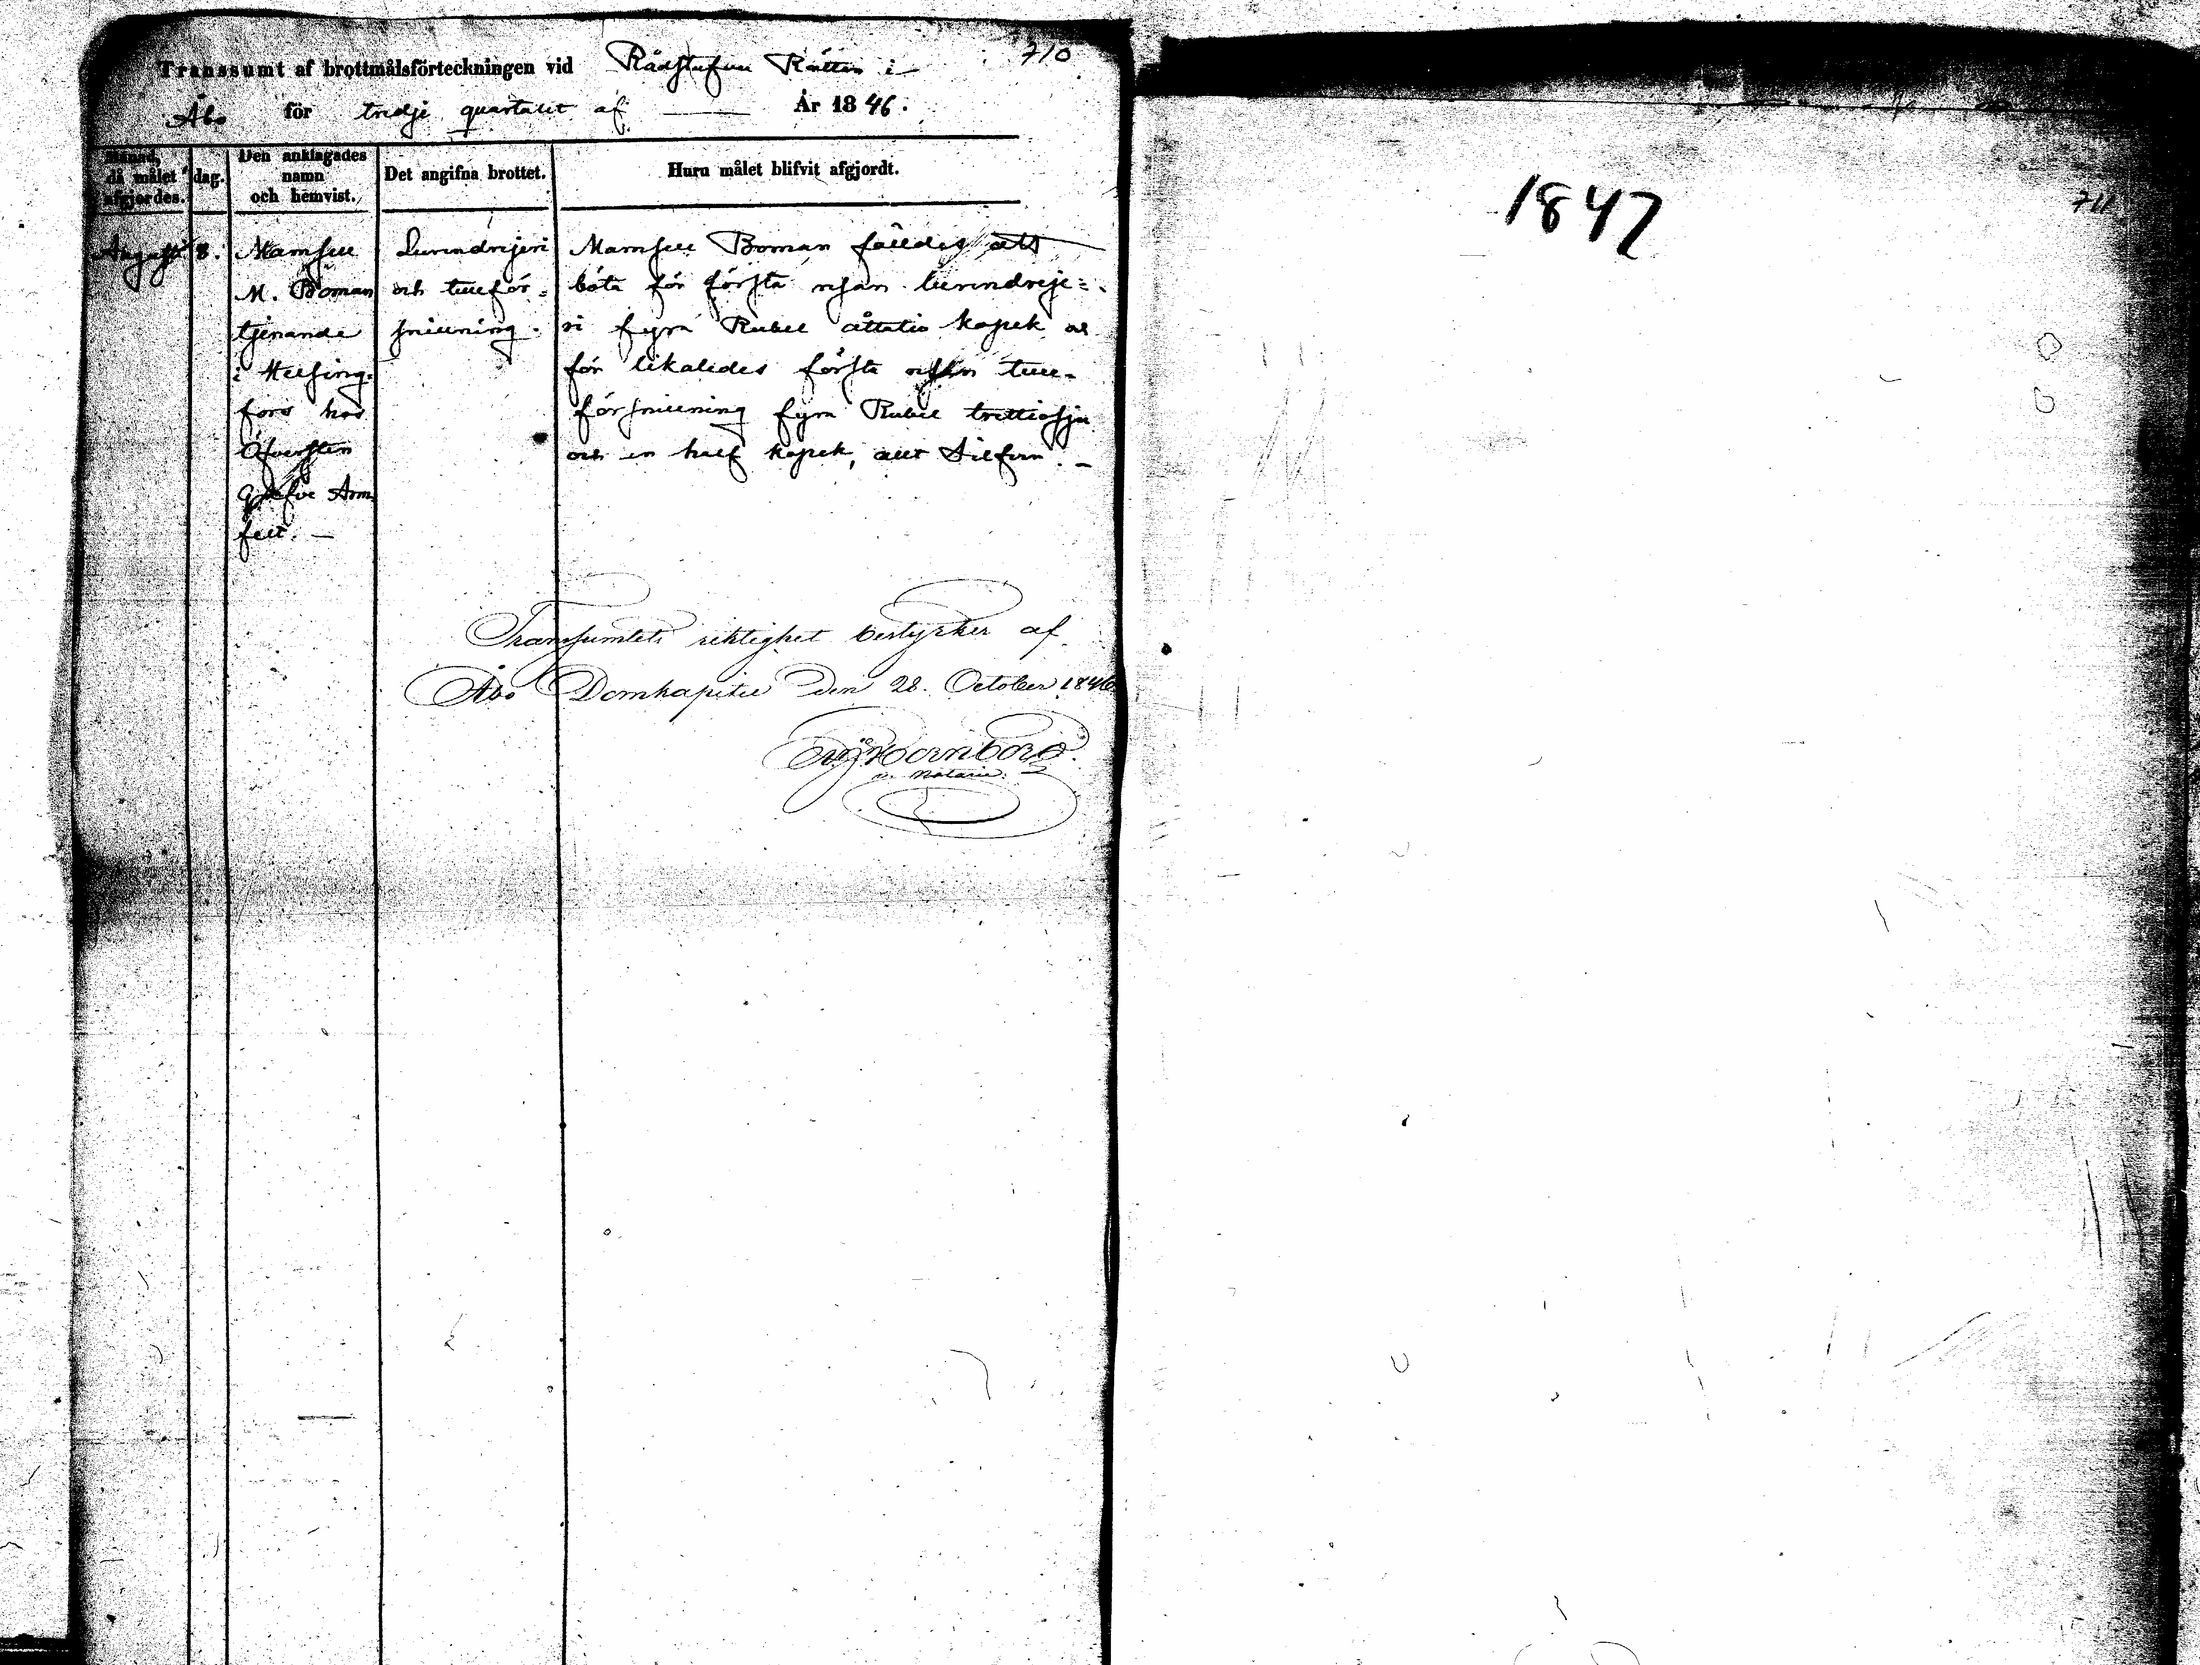 710
Transsumt af brottmålsförteckningen vid Rådstufvu Rätten i
Åbo för tredje quartalet af År 1846.
Månad, då målet afgjordes.
dag.
Den anklagades namn och hemvist.
Det angifna brottet.
Huru målet blifvit afgjordt.
Augusti 8.
Mamsell
M. Boman
tjenande
i Helsing-
fors hos
Öfversten
Grefve Arm
felt. —
Lurendrejeri
och tullför-
snillning.
Mamsell Boman fälldes att
böta för första resan lurendreje-
ri fyra Rubel åttatio kopek och
för likaledes första resan tull-
försnillning fyra Rubel trettiosju
och en half kopek, allt Silfver. —
Transsumtets riktighet bestyrker af
Åbo Domkapitel den 28. October 1846.
Hornborg.
v. Notarie.
1847
711